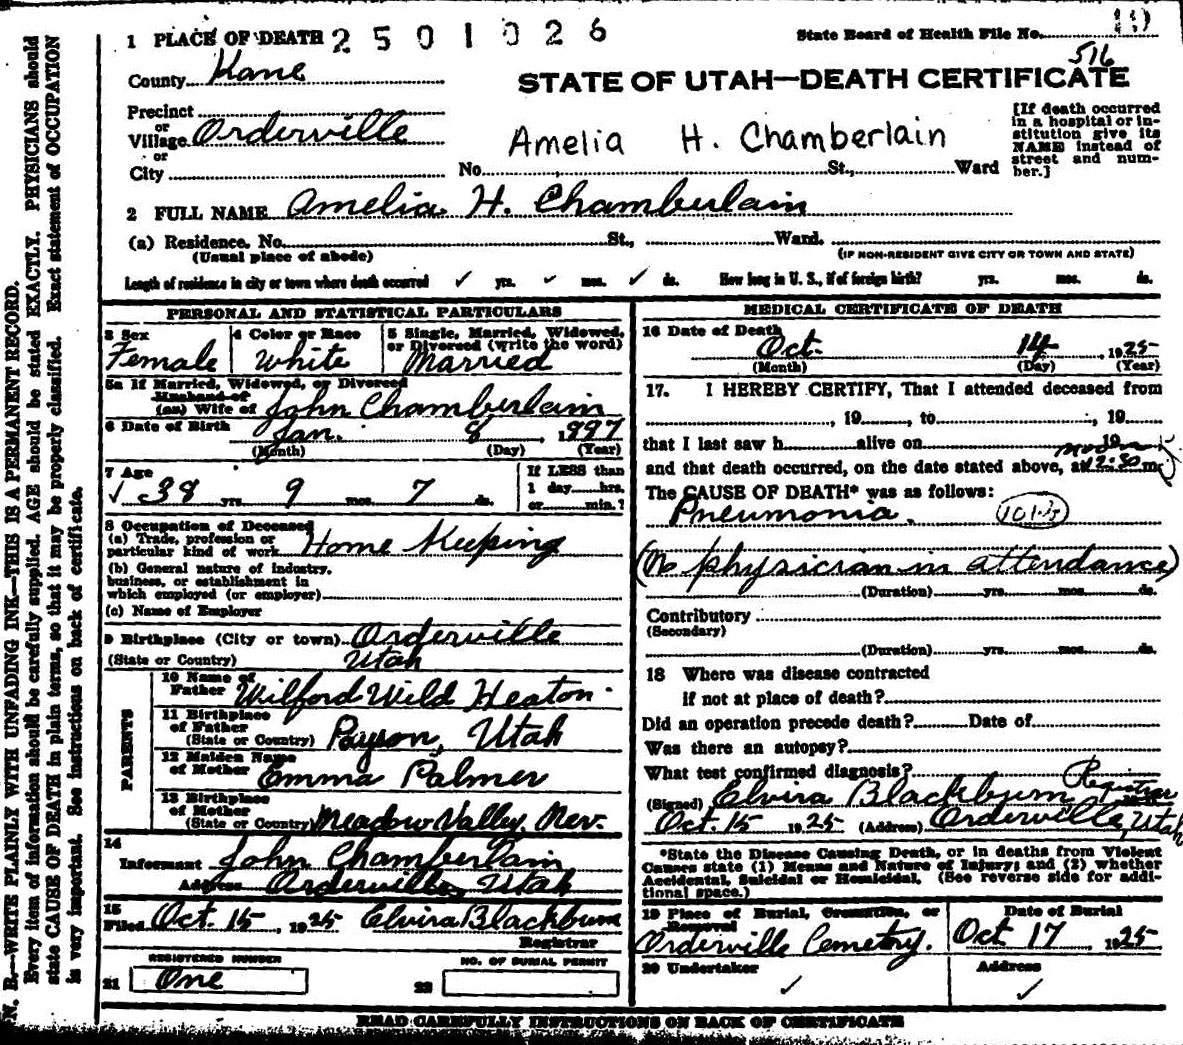 1 PLACE OF DEATH 2501026
State Board of Health File No.
516
County Kane
STATE OF UTAH—DEATH CERTIFICATE
Precinct
or
Village Orderville
or
City
Amelia H. Chamberlain
No. St., Ward
[If death occurred
in a hospital or in-
stitution give its
NAME instead of
street and num-
ber.]
2 FULL NAME Amelia H. Chamberlain
(a) Residence. No. St., Ward.
(Usual place of abode)
(IF NON-RESIDENT GIVE CITY OR TOWN AND STATE)
Length of residence in city or town where death occurred ✓ yrs. ✓ mos. ✓ ds. How long in U. S., if of foreign birth? yrs. mos. ds.
PERSONAL AND STATISTICAL PARTICULARS
3 Sex
Female
4 Color or Race
White
5 Single, Married, Widowed,
or Divorced (write the word)
Married
5a If Married, Widowed, or Divorced
Husband of
(or) Wife of John Chamberlain
6 Date of Birth Jan. 8, 1897
(Month) (Day) (Year)
7 Age
✓ 38 yrs. 9 mos. 7 ds.
If LESS than
1 day hrs.
or min.?
8 Occupation of Deceased
(a) Trade, profession or
particular kind of work Home Keeping
(b) General nature of industry,
business, or establishment in
which employed (or employer)
(c) Name of Employer
9 Birthplace (City or town) Orderville
(State or Country) Utah
PARENTS
10 Name of
Father Wilford Wild Heaton
11 Birthplace
of Father
(State or Country) Payson, Utah
12 Maiden Name
of Mother Emma Palmer
13 Birthplace
of Mother
(State or Country) Meadow Valley, Nev.
14
Informant John Chamberlain
Address Orderville, Utah
15
Filed Oct. 15, 1925 Elvira Blackburn
Registrar
REGISTERED NUMBER
21 One
NO. OF BURIAL PERMIT
22
MEDICAL CERTIFICATE OF DEATH
16 Date of Death
Oct. 14, 1925
(Month) (Day) (Year)
17. I HEREBY CERTIFY, That I attended deceased from
, 19 , to , 19
that I last saw h alive on 19
and that death occurred, on the date stated above, at 12:30 m.
The CAUSE OF DEATH* was as follows:
Pneumonia.
(No physician in attendance)
(Duration) yrs. mos. ds.
Contributory
(Secondary)
(Duration) yrs. mos. ds.
18 Where was disease contracted
if not at place of death?
Did an operation precede death? Date of
Was there an autopsy?
What test confirmed diagnosis?
Registrar
(Signed) Elvira Blackburn
Oct. 15 1925 (Address) Orderville, Utah
*State the Disease Causing Death, or in deaths from Violent
Causes state (1) Means and Nature of Injury; and (2) whether
Accidental, Suicidal or Homicidal. (See reverse side for addi-
tional space.)
19 Place of Burial, Cremation, or
Removal
Orderville Cemetry.
Date of Burial
Oct 17, 1925
20 Undertaker
✓
Address
✓
READ CAREFULLY INSTRUCTIONS ON BACK OF CERTIFICATE
N. B.—WRITE PLAINLY WITH UNFADING INK—THIS IS A PERMANENT RECORD.
Every item of information should be carefully supplied. AGE should be stated EXACTLY. PHYSICIANS should
state CAUSE OF DEATH in plain terms, so that it may be properly classified. Exact statement of OCCUPATION
is very important. See instructions on back of certificate.